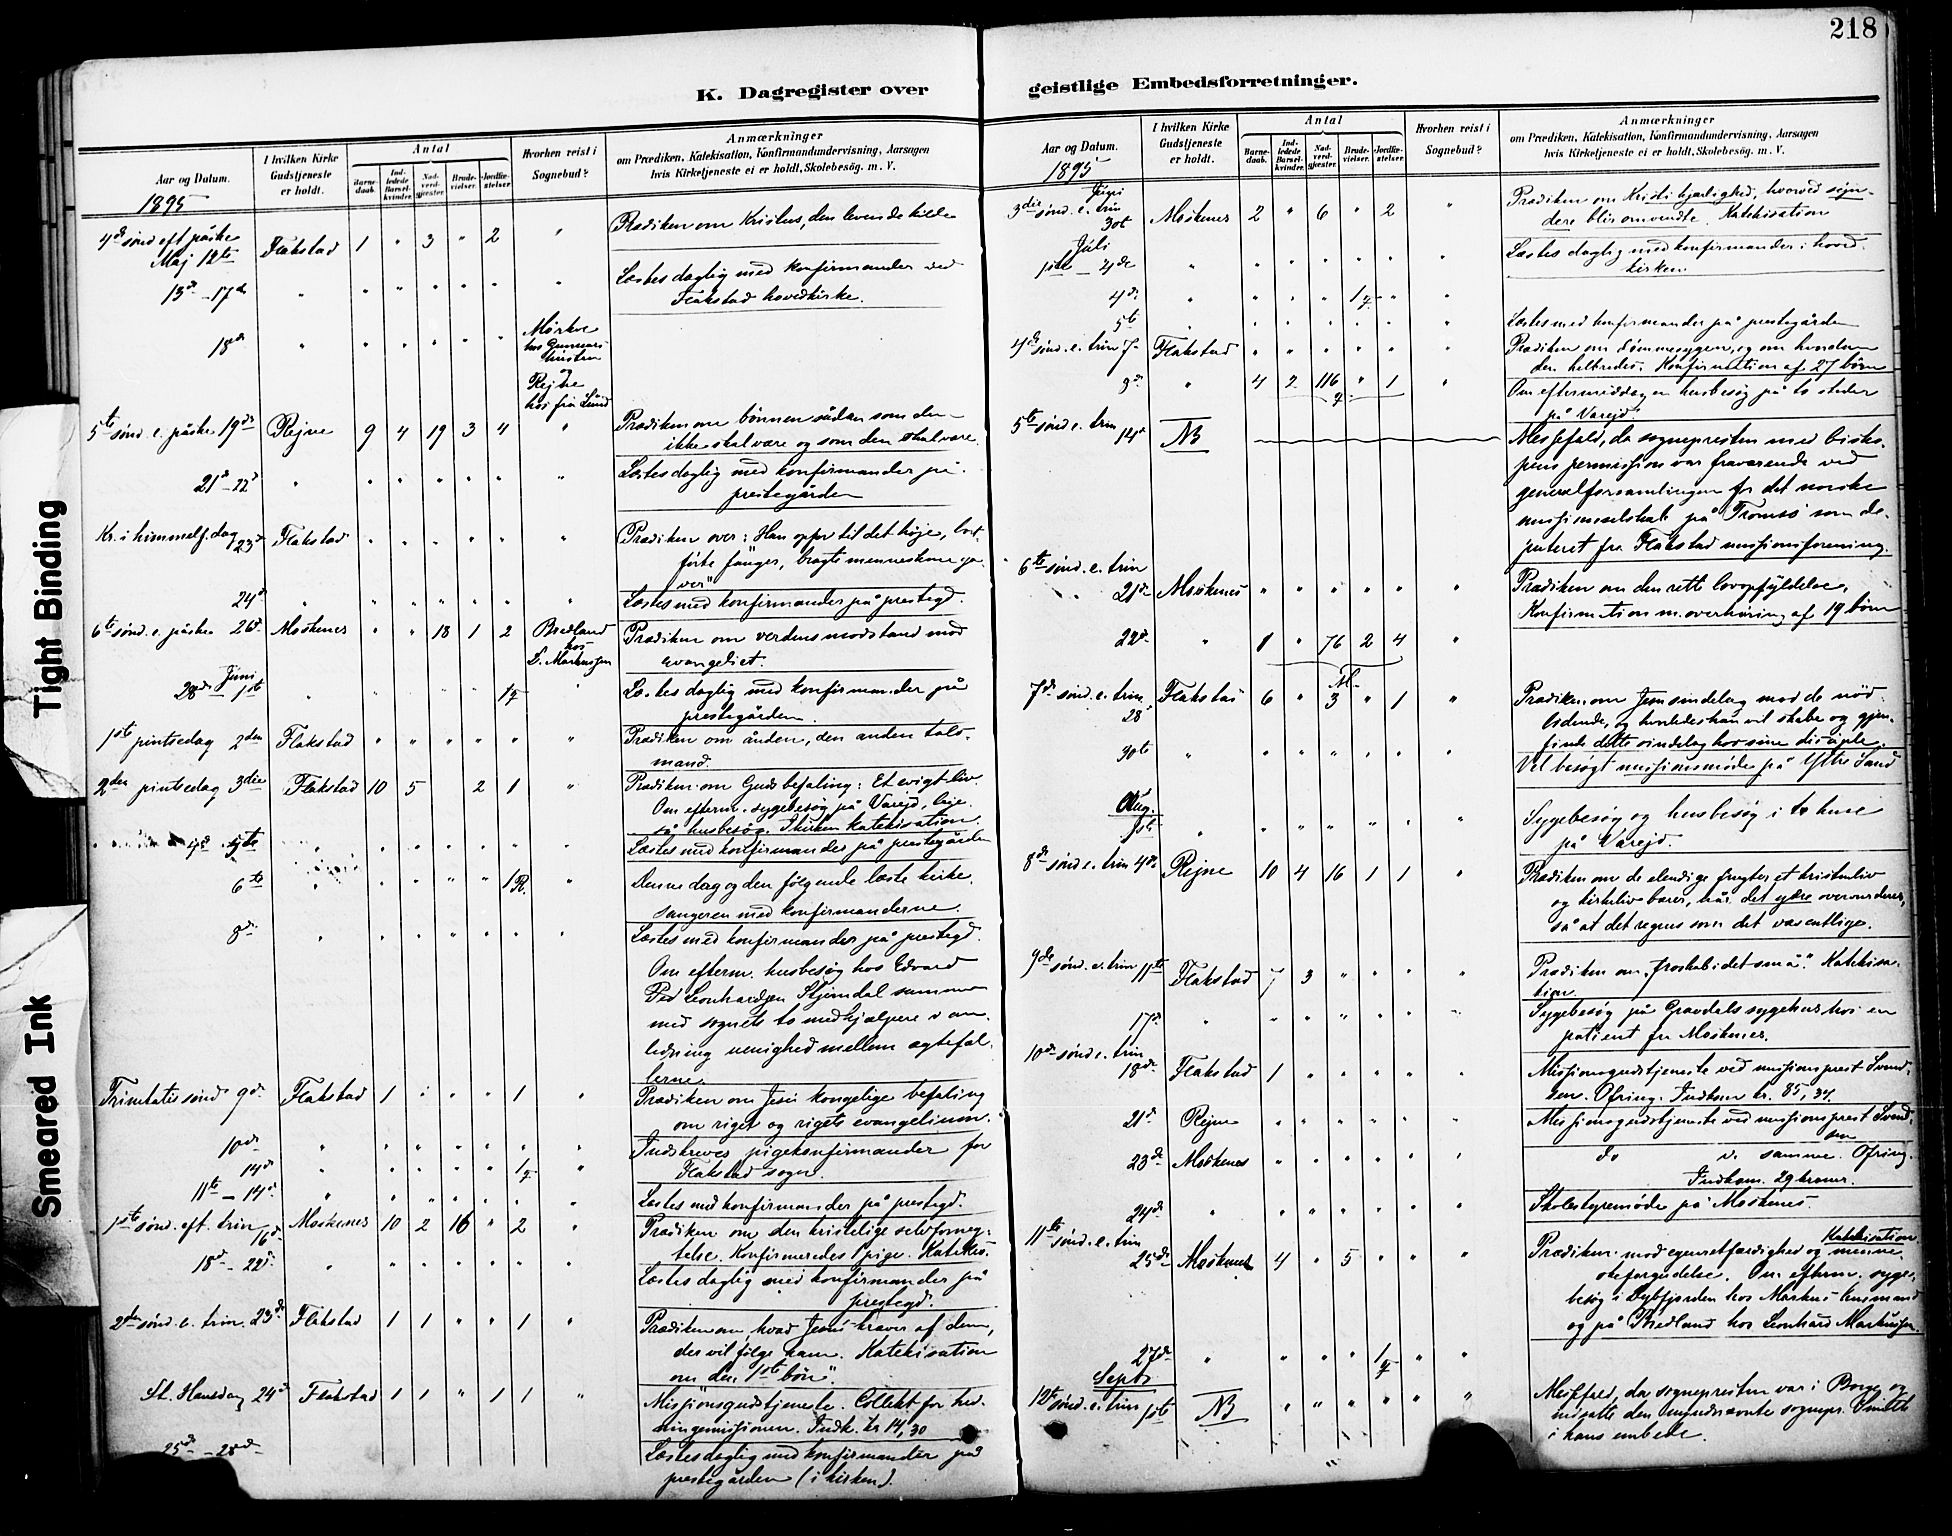 218
K. Dagregister over
geistlige Embedsforretninger.
Aar og Datum.
I hvilken Kirke
Gudstjeneste
er holdt.
Antal
Barne-
daab.
Ind-
ledede
Barsel-
kvinder.
Nad-
verd-
gjester
Brude-
vielser.
Jordfæ-
stelser
Hvorhen reist i
Sognebud?
Anmærkninger
om Prædiken, Katekisation, Konfirmandundervisning, Aarsagen
hvis Kirketjeneste ei er holdt, Skolebesög. m. V.
1895
4de sønd eft påske
Maj 12te Flakstad 1 " 3 " 2 "
Prædiken om Kristus, den levende kilde
13d - 17d " " " " " " "
Læstes daglig med konfirmander ved
Flakstad hovedkirke.
18de " " " " " "
Mørkve
hos Gunnar
og
Rejne
hos fru Lund
5te sønd. e. påske 19de Rejne 9 4 19 3 4 "
Prædiken om bønnen sådan som den
ikke skal være og som den skal være.
21d - 22d " " " " " " "
Læstes daglig med konfirmander på
prestegården
Kr. i himmelf.dag 23d Flakstad " " " " " "
Prædiken over: Han opfor til det høje, bort
førte fanger, bragte menneskene ga-
ver"
24d " " " " " " "
Læstes med konfirmander på prestegd.
6te sønd. e. påske 26d. Moskenes " " 18 1 2
Bredland
hos
L. Markussen
Prædiken om verdens modstand mod
evangeliet.
Juni
28de 1ste " " " " " 1 "
Læstes daglig med konfirmander på
prestegården.
1ste pintsedag 2den Flakstad " " " " " "
Prædiken om ånden, den anden tals-
mand.
2den pintsedag 3die Flakstad 10 5 2 1 "
Prædiken om Guds befaling: Et evigt liv.
Om efterm. sygebesøg på Varejd, lige-
så husbesøg. I kirken katekisation.
4d 5te " " " " " " "
Læstes med konfirmander på prestegården
6te " " " " " 1 R. "
Denne dag og den følgende læste kirke-
sangeren med konfirmanderne.
8de " " " " " " "
Læstes med konfirmander på prestegd.
Om efterm. husbesøg hos Edvard
Leonhardsen sammen
med sognets to medhjælpere i an-
ledning uenighed mellem ægtefol-
kene.
Trinitatis sønd 9de Flakstad 1 " " " 1 "
Prædiken om Jesu kongelige befaling
om riget og rigets evangelium.
10de " " " " " " "
Indskreves pigekonfirmander for
Flakstad sogn.
14de " " " " " 1 "
11te - 14d " " " " " " "
Læstes med konfirmander på prestegd.
1ste sønd. eft. trin 16d Moskenes 10 2 16 " 2 "
Prædiken om den kristelige selvforneg-
telse. Konfirmeredes 1 pige. Katekis.
18d - 22d " " " " " " "
Læstes daglig med konfirmander på
prestegd.
2den sønd. e. trin. 23de Flakstad 1 1 " " 1 "
Prædiken om, hvad Jesus kræver af dem,
der vil følge ham. Katekisation
om den 1ste bøn".
St. Hansdag 24d Flakstad 1 1 " 1 1 "
Missionsgudstjeneste. Collekt for hed-
ningemissionen. Indk. kr 14,30
25de - 28de
Læstes daglig med konfirmander på
prestegården (i kirken).
Aar og Datum.
I hvilken Kirke
Gudstjeneste
er holdt.
Antal
Barne-
daab.
Ind-
ledede
Barsel-
kvinder.
Nad-
verd-
gjester
Brude-
vielser.
Jordfæ-
stelser
Hvorhen reist i
Sognebud?
Anmærkninger
om Prædiken, Katekisation, Konfirmandundervisning, Aarsagen
hvis Kirketjeneste ei er holdt, Skolebesög m. V.
1895
Juni
3die sønd. e. trin 30te Moskenes 2 " 6 " 2 "
Prædiken om Kristi kjærlighed, hvorved syn-
dere blir omvendte. Katekisation
Juli
1ste - 4de " " " " " " "
Læstes daglig med konfirmander i hoved-
kirken.
4de " " " " 1 " "
5te " " " " " " "
Læstes med konfirmander på prestegården
4de sønd. e. trin 7de Flakstad " " " " " "
Prædiken om dømmesygen, og om hvordan
den helbredes. Konfirmation af 27 børn
8de " 4 2 116 " 1 "
Om eftermiddagen husbesøg på to steder
på Varejd.
5te sønd. e. trin 14d NB
Messefald, da sognepresten med bisko-
pens permission var fraværende ved
generalforsamlingen for det norske
missionsselskab på Tromsø som de-
puteret fra Flakstad missionsforening.
6te sønd. e. trin
21de Moskenes " " " " " "
Prædiken om den rette lovopfyldelse.
Konfirmation m. overhøring af 19 børn
22de " 1 " 76 2 4 "
7de sønd. e. trin. 28de Flakstad 6 " 3 " 1 "
Prædiken om Jesu sindelag mod de nød-
lidende, og hvorledes han vil skabe og gjen-
finde dette sindelag hos sine disciple.
30te " " " " " " "
Vel besøgt missionsmøde på Ytre Sand
Aug.
1ste " " " " " " "
Sygebesøg og husbesøg i to huse
på Varejd.
8de sønd. e. trin 4de Rejne 10 4 16 1 1 "
Prædiken om de elendige frugter et kristenliv
og kirkeliv bærer, når det ydre overvurderes,
så at det regnes som det væsentlige.
9de sønd. e. trin 11te Flakstad 7 3 " " " "
Prædiken om "troskab i det små". Katekisa-
tion.
17d " " " " " " "
Sygebesøg på Gravdals sygehus hos en
patient fra Moskenes.
10de sønd e. trin
18de Flakstad 1 " " " " "
Missionsgudstjeneste ved missionsprest Svend-
sen. Ofring. Indkom kr. 85,34
21d Rejne " " " " " "
Missionsgudstjeneste ved missionsprest Svend-
sen
23de Moskenes " " " " " "
do v. samme. Ofring.
Indkom. 29 kroner.
24de " " " " " " "
Skolestyremøde på Moskenes.
11te sønd. e. trin
25de Moskenes 4 " 5 " " "
Katekisation
Prædiken mod egenretfærdighed og menne-
skeforgudelse. Om efterm. syge-
besøg i Dybfjorden hos Markus husmand
og på Bredland hos Leonhard Markussen.
27de " " " " 1 " "
Septb
12te sønd. e. trin 1ste NB " " " " " "
Messefald, da sognepresten var i Borge og
indsatte den nyudnævnte sognepr. Smith
i hans embede.
Tight Binding
Smeared Ink